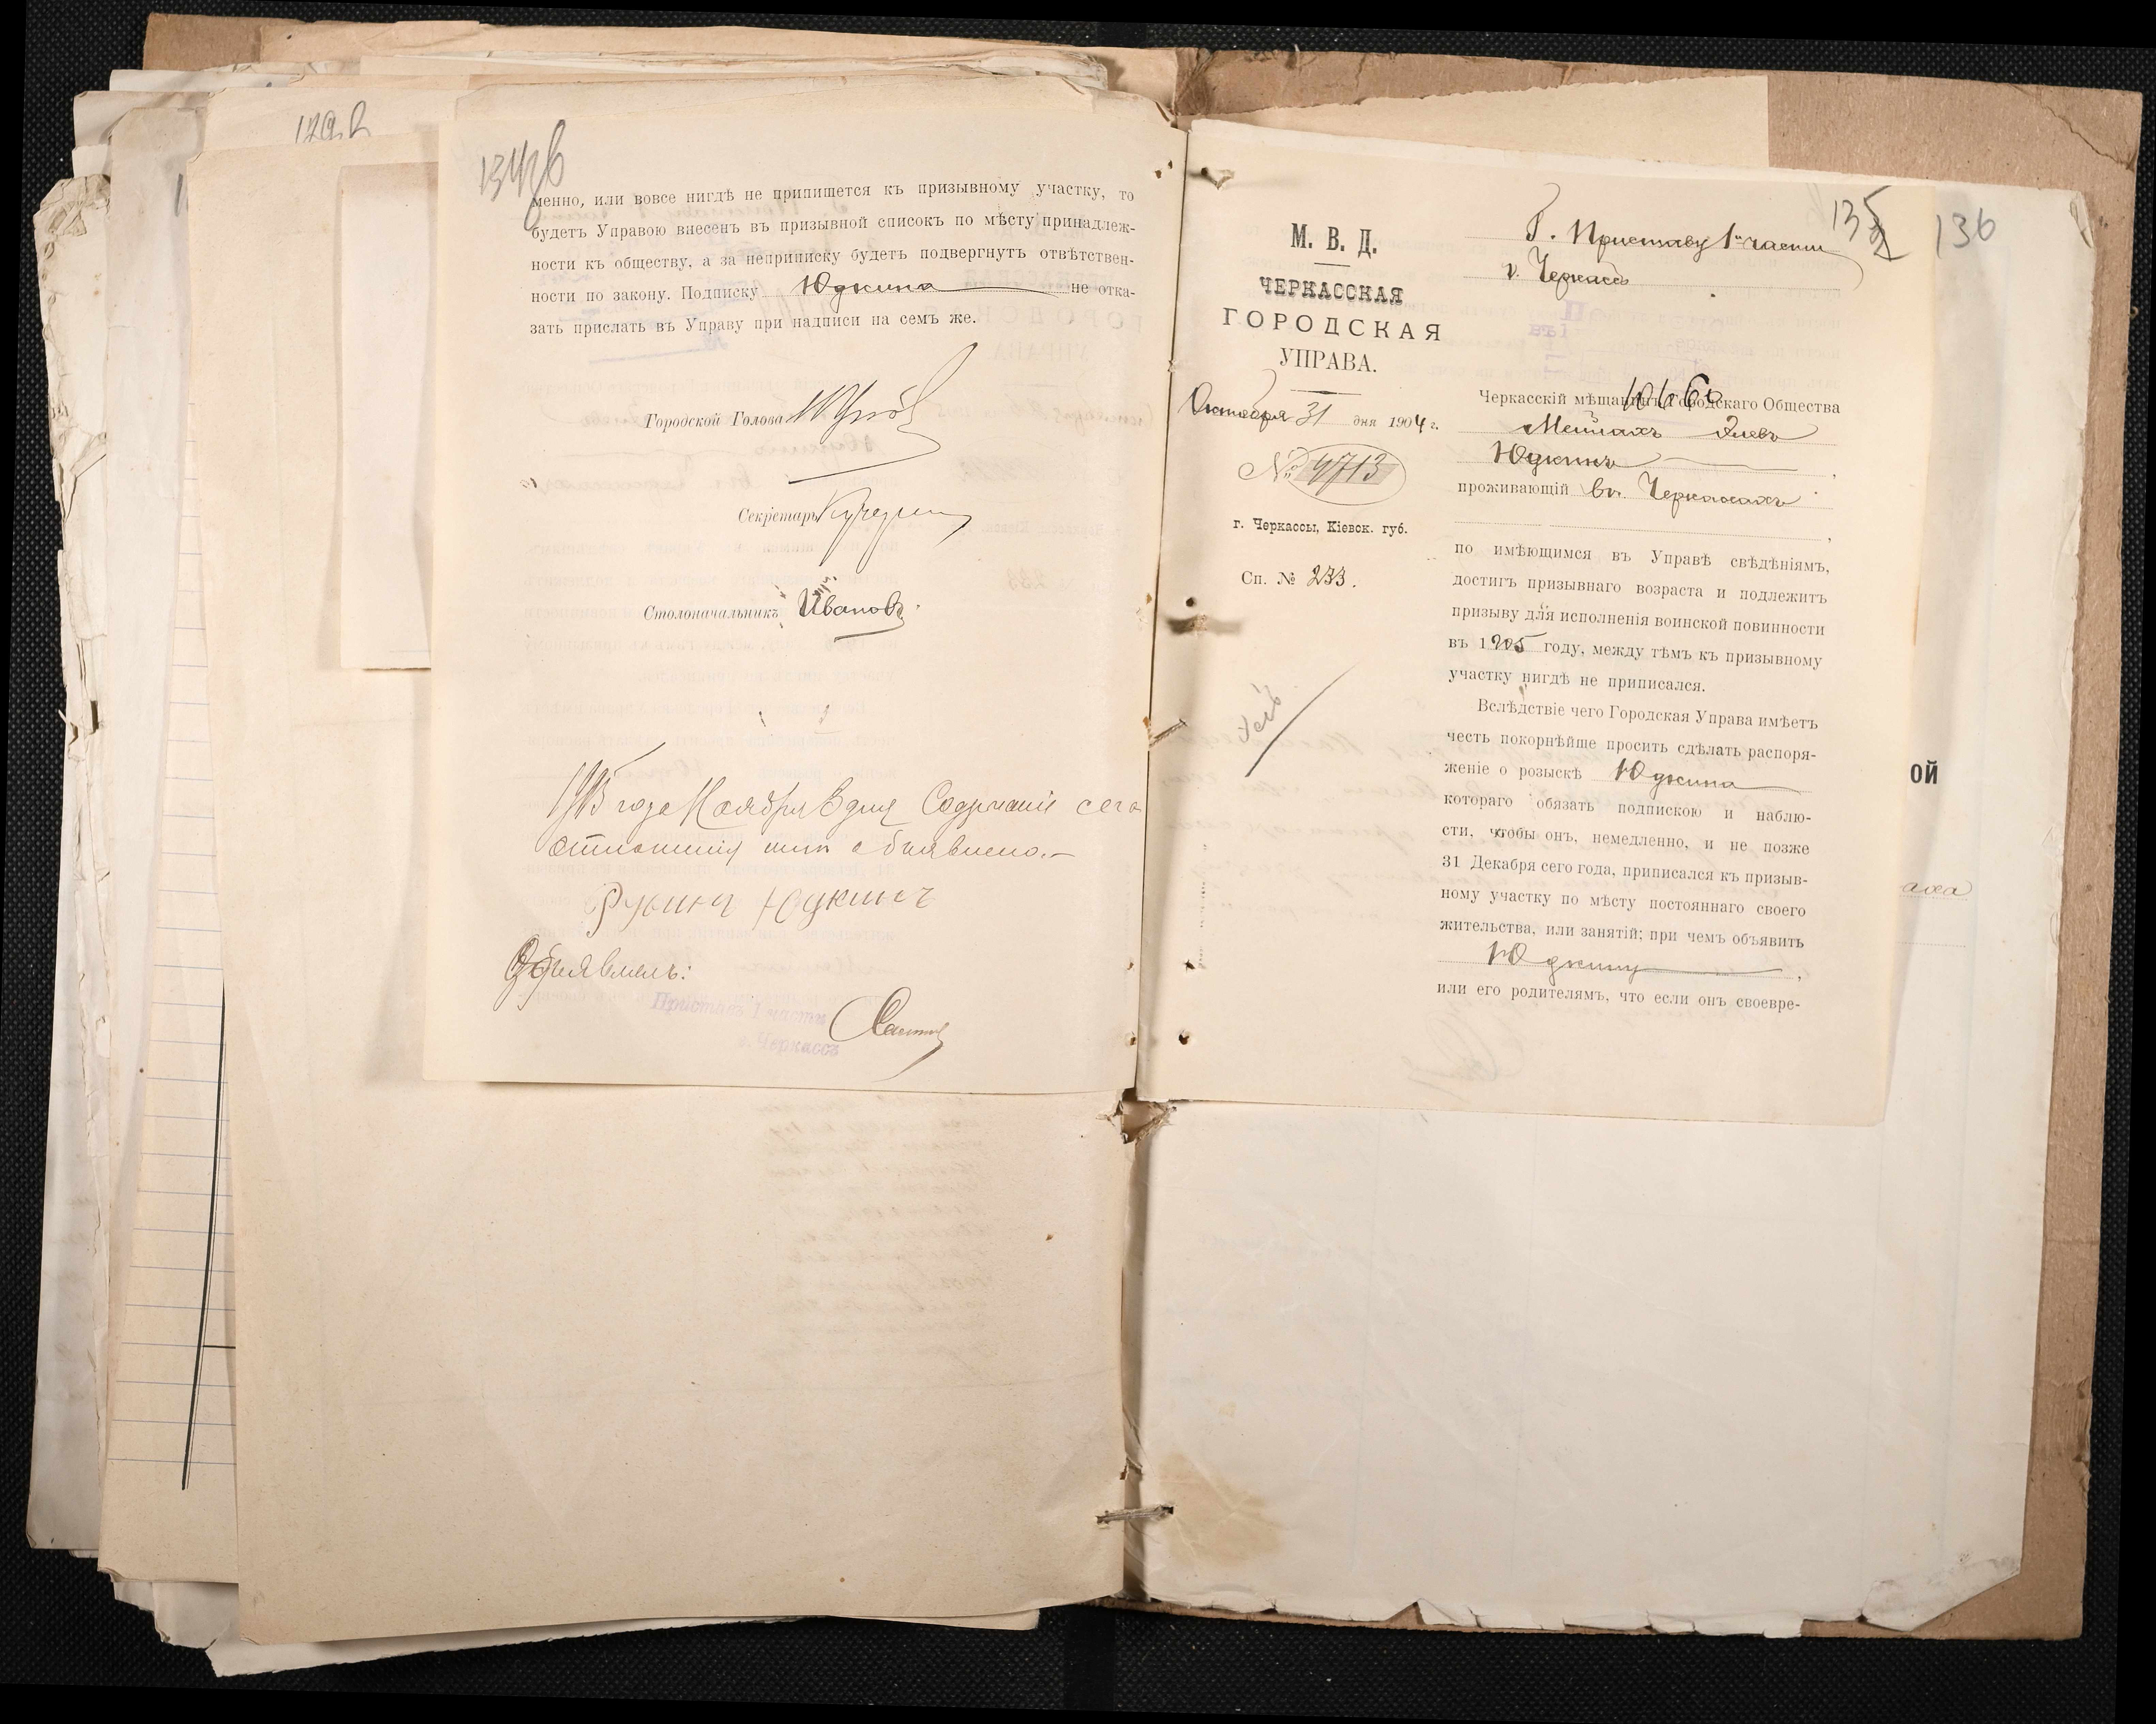 менно, или вовсе нигдѣ не припишется къ призывному участку, то
будетъ Управою внесенъ въ призывной списокъ по мѣсту принадлеж-
ности къ обществу, а за неприписку будетъ подвергнутъ отвѣтствен-
ности по закону. Подписку Юдкина не отка-
зать прислать въ Управу при надписи на семъ же.
Городской Голова
Секретарь
Столоначальникъ Ивановъ
года Ноября 3 дня Содержаніе сего
отношенія мнѣ объявлено.—
Юдкинъ
Объявилъ:
Приставъ 1 части
г. Черкассъ
135
136
М. В. Д.
ЧЕРКАССКАЯ
ГОРОДСКАЯ
УПРАВА.
Октября 31 дня 1904 г.
№ 4713
г. Черкассы, Кіевск. губ.
Сп. № 233.
Г. Приставу 1й части
г. Черкассъ
Черкасскій мѣщанинъ Городскаго Общества
Мейлахъ
Юдкинъ,
проживающій въ г. Черкассахъ,
по имѣющимся въ Управѣ свѣдѣніямъ,
достигъ призывнаго возраста и подлежитъ
призыву для исполненія воинской повинности
въ 1905 году, между тѣмъ къ призывному
участку нигдѣ не приписался.
Вслѣдствіе чего Городская Управа имѣетъ
честь покорнѣйше просить сдѣлать распоря-
женіе о розыскѣ Юдкина
котораго обязать подпискою и наблю-
сти, чтобы онъ, немедленно, и не позже
31 Декабря сего года, приписался къ призыв-
ному участку по мѣсту постояннаго своего
жительства, или занятій; при чемъ объявить
Юдкину,
или его родителямъ, что если онъ своевре-
ой